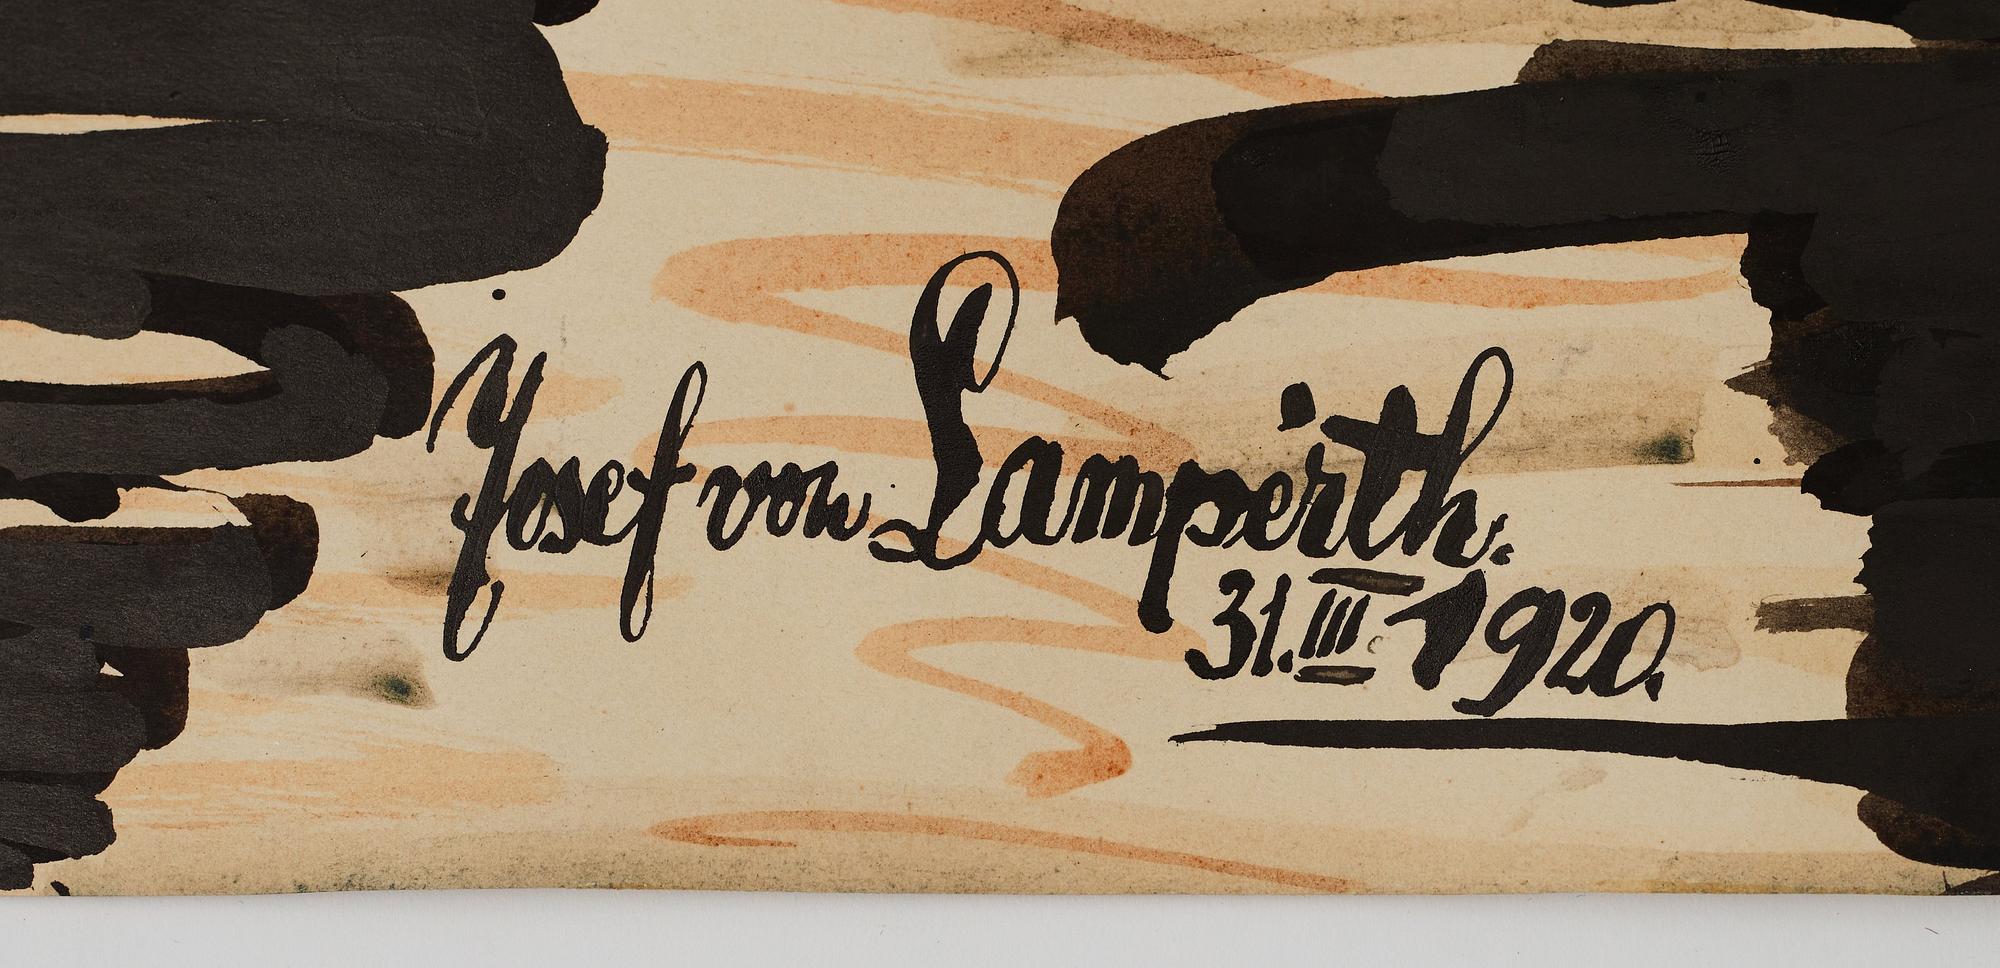 Josef von Lampérth.
31. III 1920.